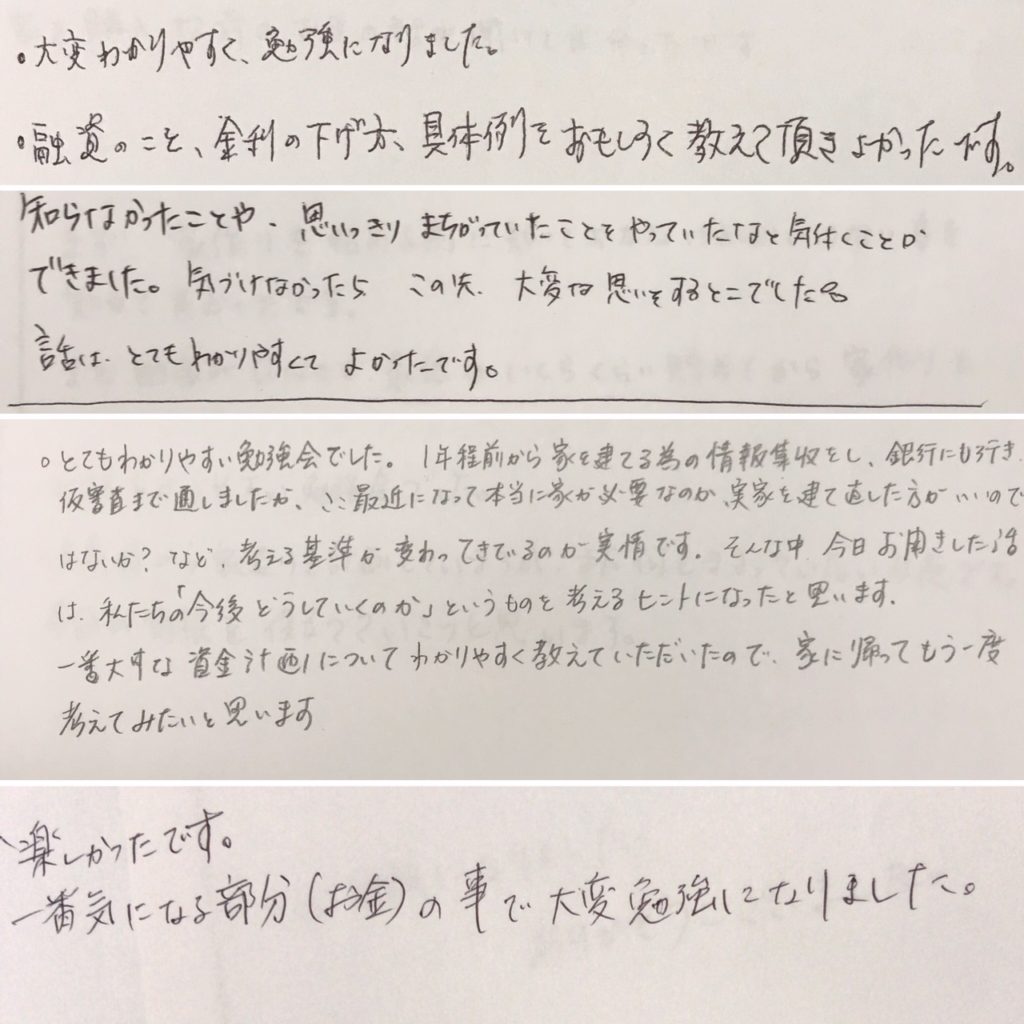 。大変わかりやすく、勉強になりました。
。融資のこと、金利の下げ方、具体例をおもしろく教えて頂きよかったです。
知らなかったことや、思いっきりまちがっていたことをやっていたなと気付くことが
できました。気づけなかったら この先、大変な思いをするとこでした。
話は、とてもわかりやすくて よかったです。
。とてもわかりやすい勉強会でした。1年程前から家を建てる為の情報集収をし、銀行にも行き
仮審査まで通しましたが、ここ最近になって本当に家が必要なのか、実家を建て直した方がいいので
はないか?など、考える基準が変わってきているのが実情です。そんな中、今日お聞きした話
は、私たちの「今後どうしていくのか」というものを考えるヒントになったと思います。
一番大事な資金計画についてわかりやすく教えていただいたので、家に帰ってもう一度
考えてみたいと思います
楽しかったです。
一番気になる部分(お金)の事で大変勉強になりました。